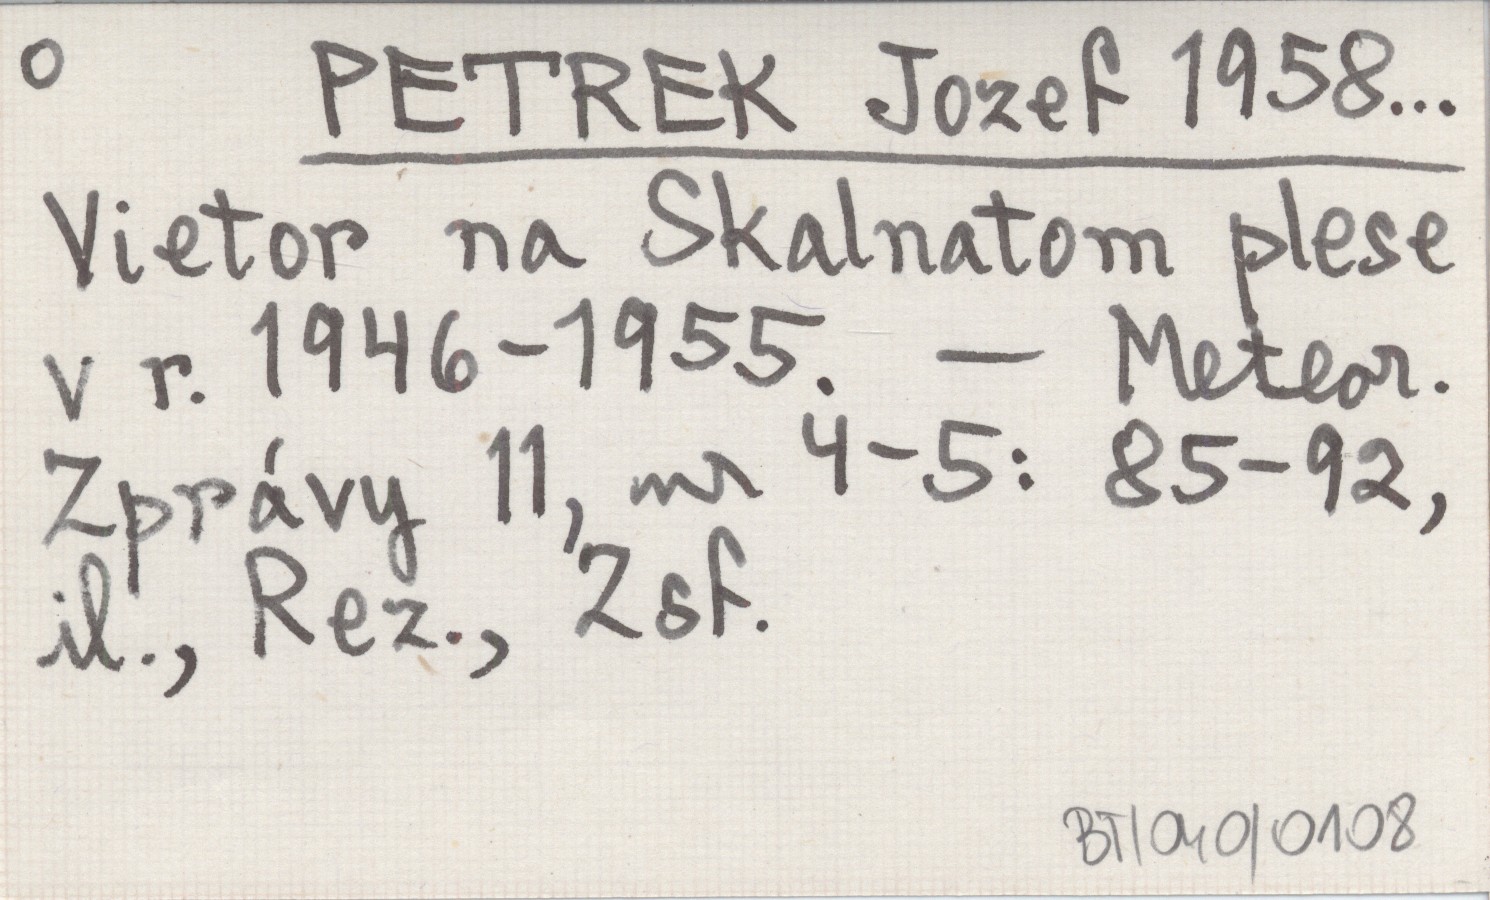 o PETREK Jozef 1958...
Vietor na Skalnatom plese
v r. 1946-1955. — Meteor.
Zprávy 11, nr 4-5: 85-92,
il., Rez., Zsf.
BT/040/0108